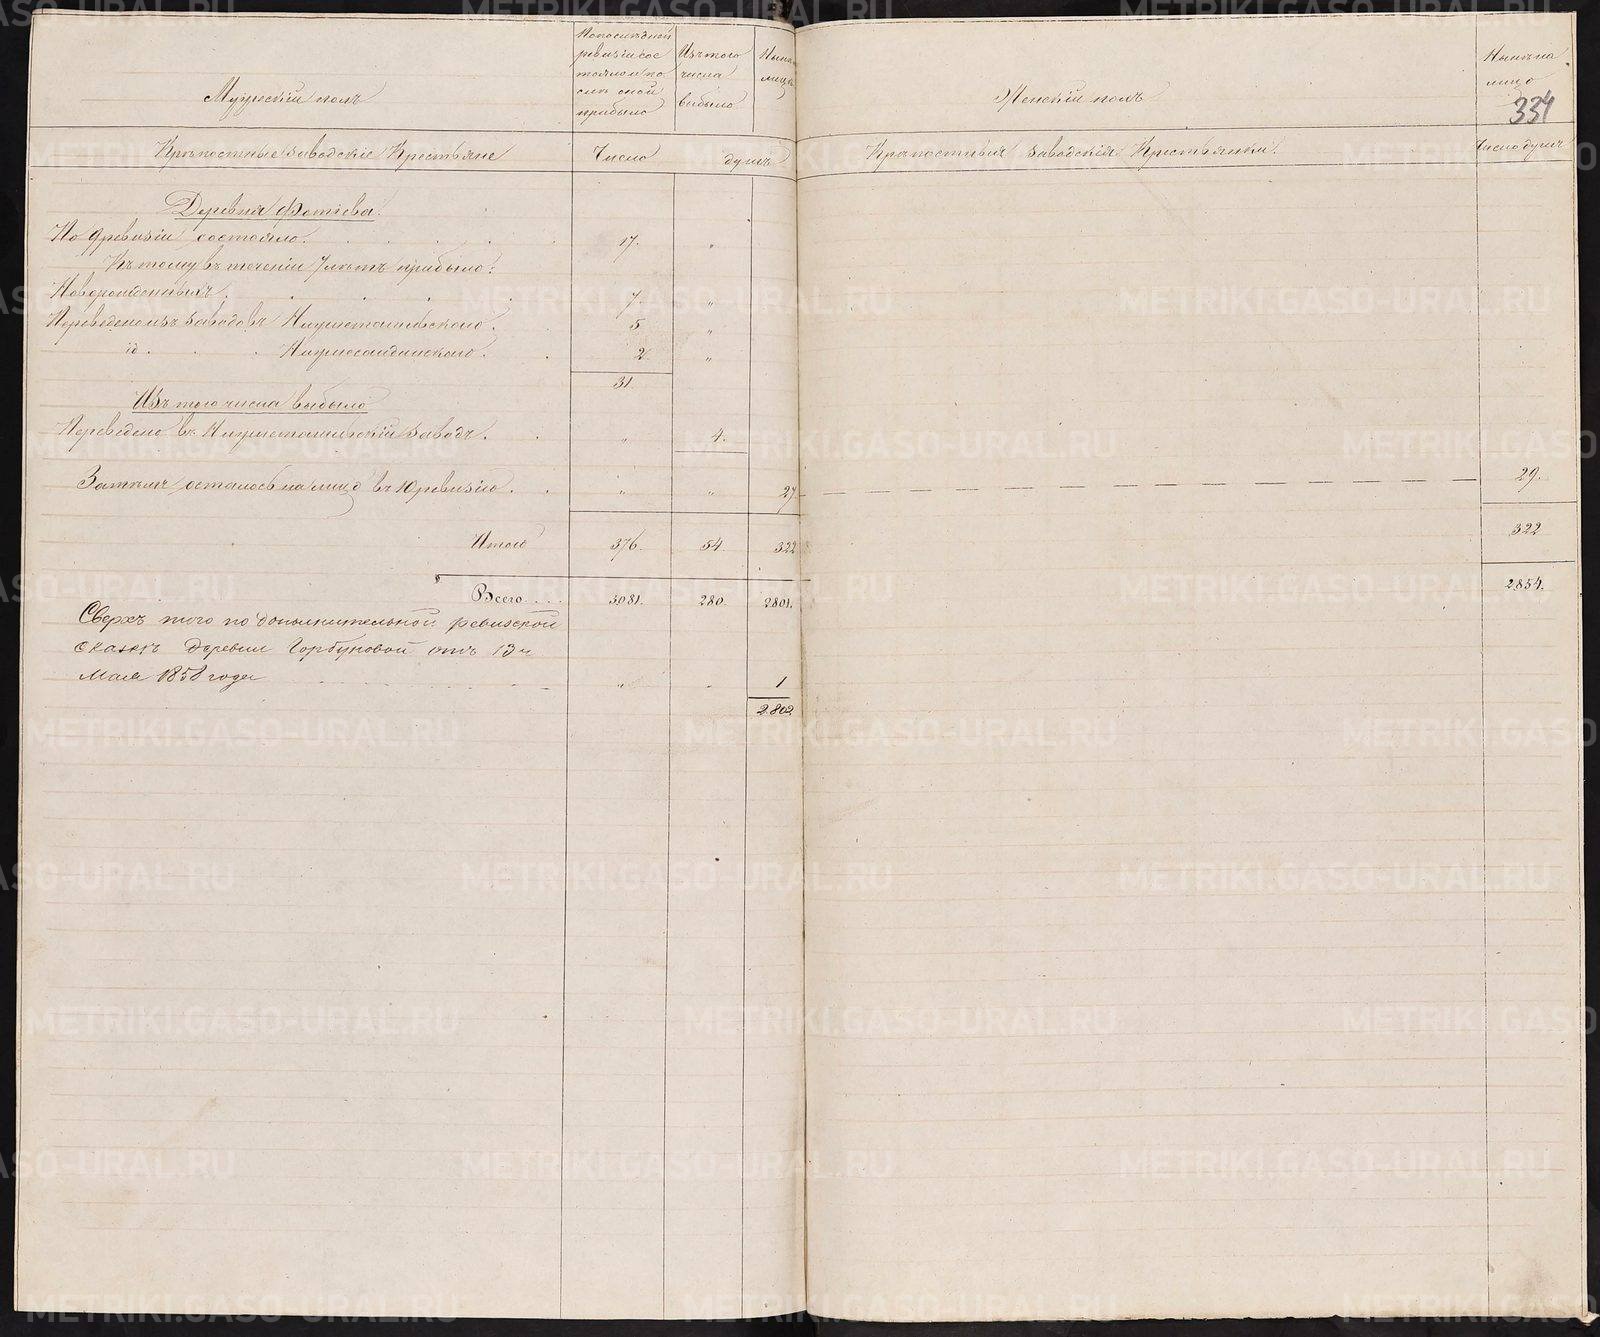 Мужескій полъ
По последней
ревизіи сос
тояло и по
слѣ оной
прибыло
Изъ того
числа
выбыло
Нынѣ на
лицо
Крѣпостные заводскіе Крестьяне
Число душъ
Деревня Фотіева.
По 9 ревизіи состояло. 17. "
Къ тому въ теченіи 7 лѣтъ прибыло:
Новорожденныхъ. 7. "
Переведено изъ заводовъ Нижнетагильскаго. 5 "
id. Нижнесалдинскаго. 2. "
31.
Изъ того числа выбыло
Переведено въ Нижнетагильскій заводъ. " 4.
Затѣмъ осталось на лицо въ 10 ревизію. " " 27
Итого 376. 54. 322
Всего.... 3081. 280. 2801.
Сверхъ того по дополнительной ревизской
сказкѣ деревни Горбуновой отъ 13 ч
Мая 1858 года " " 1
2802
Женскій полъ
Нынѣ на
лицо
334
Крѣпостныя заводскія Крестьянки.
Число душъ
29.
322
2854.
METRIKI.GASO-URAL.RU